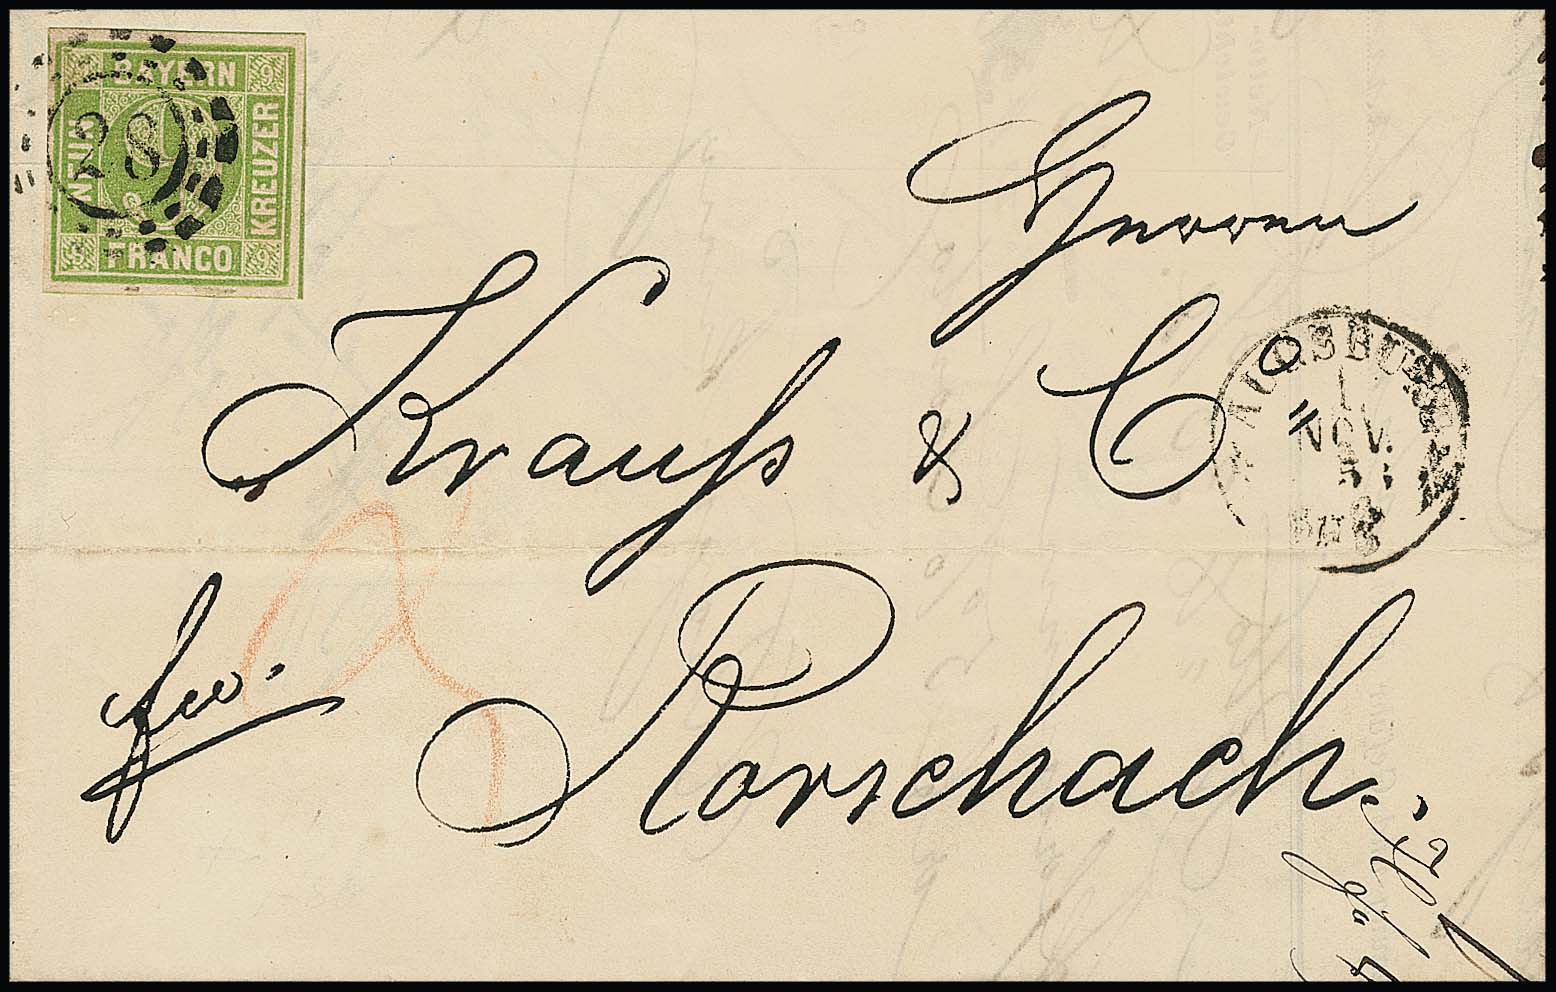 BAYERN
NEUN
KREUZER
FRANCO
9
9
9
9
28
Herren
Krauß & Co
AUGSBURG
1.
NOV.
frco.
Rorschach.